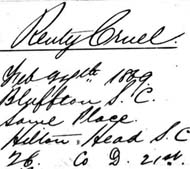 Renty Cruel.
Feb 1889
Bluffton S. C.
Same Place.
Hilton Head S. C
26. Co D. 21st